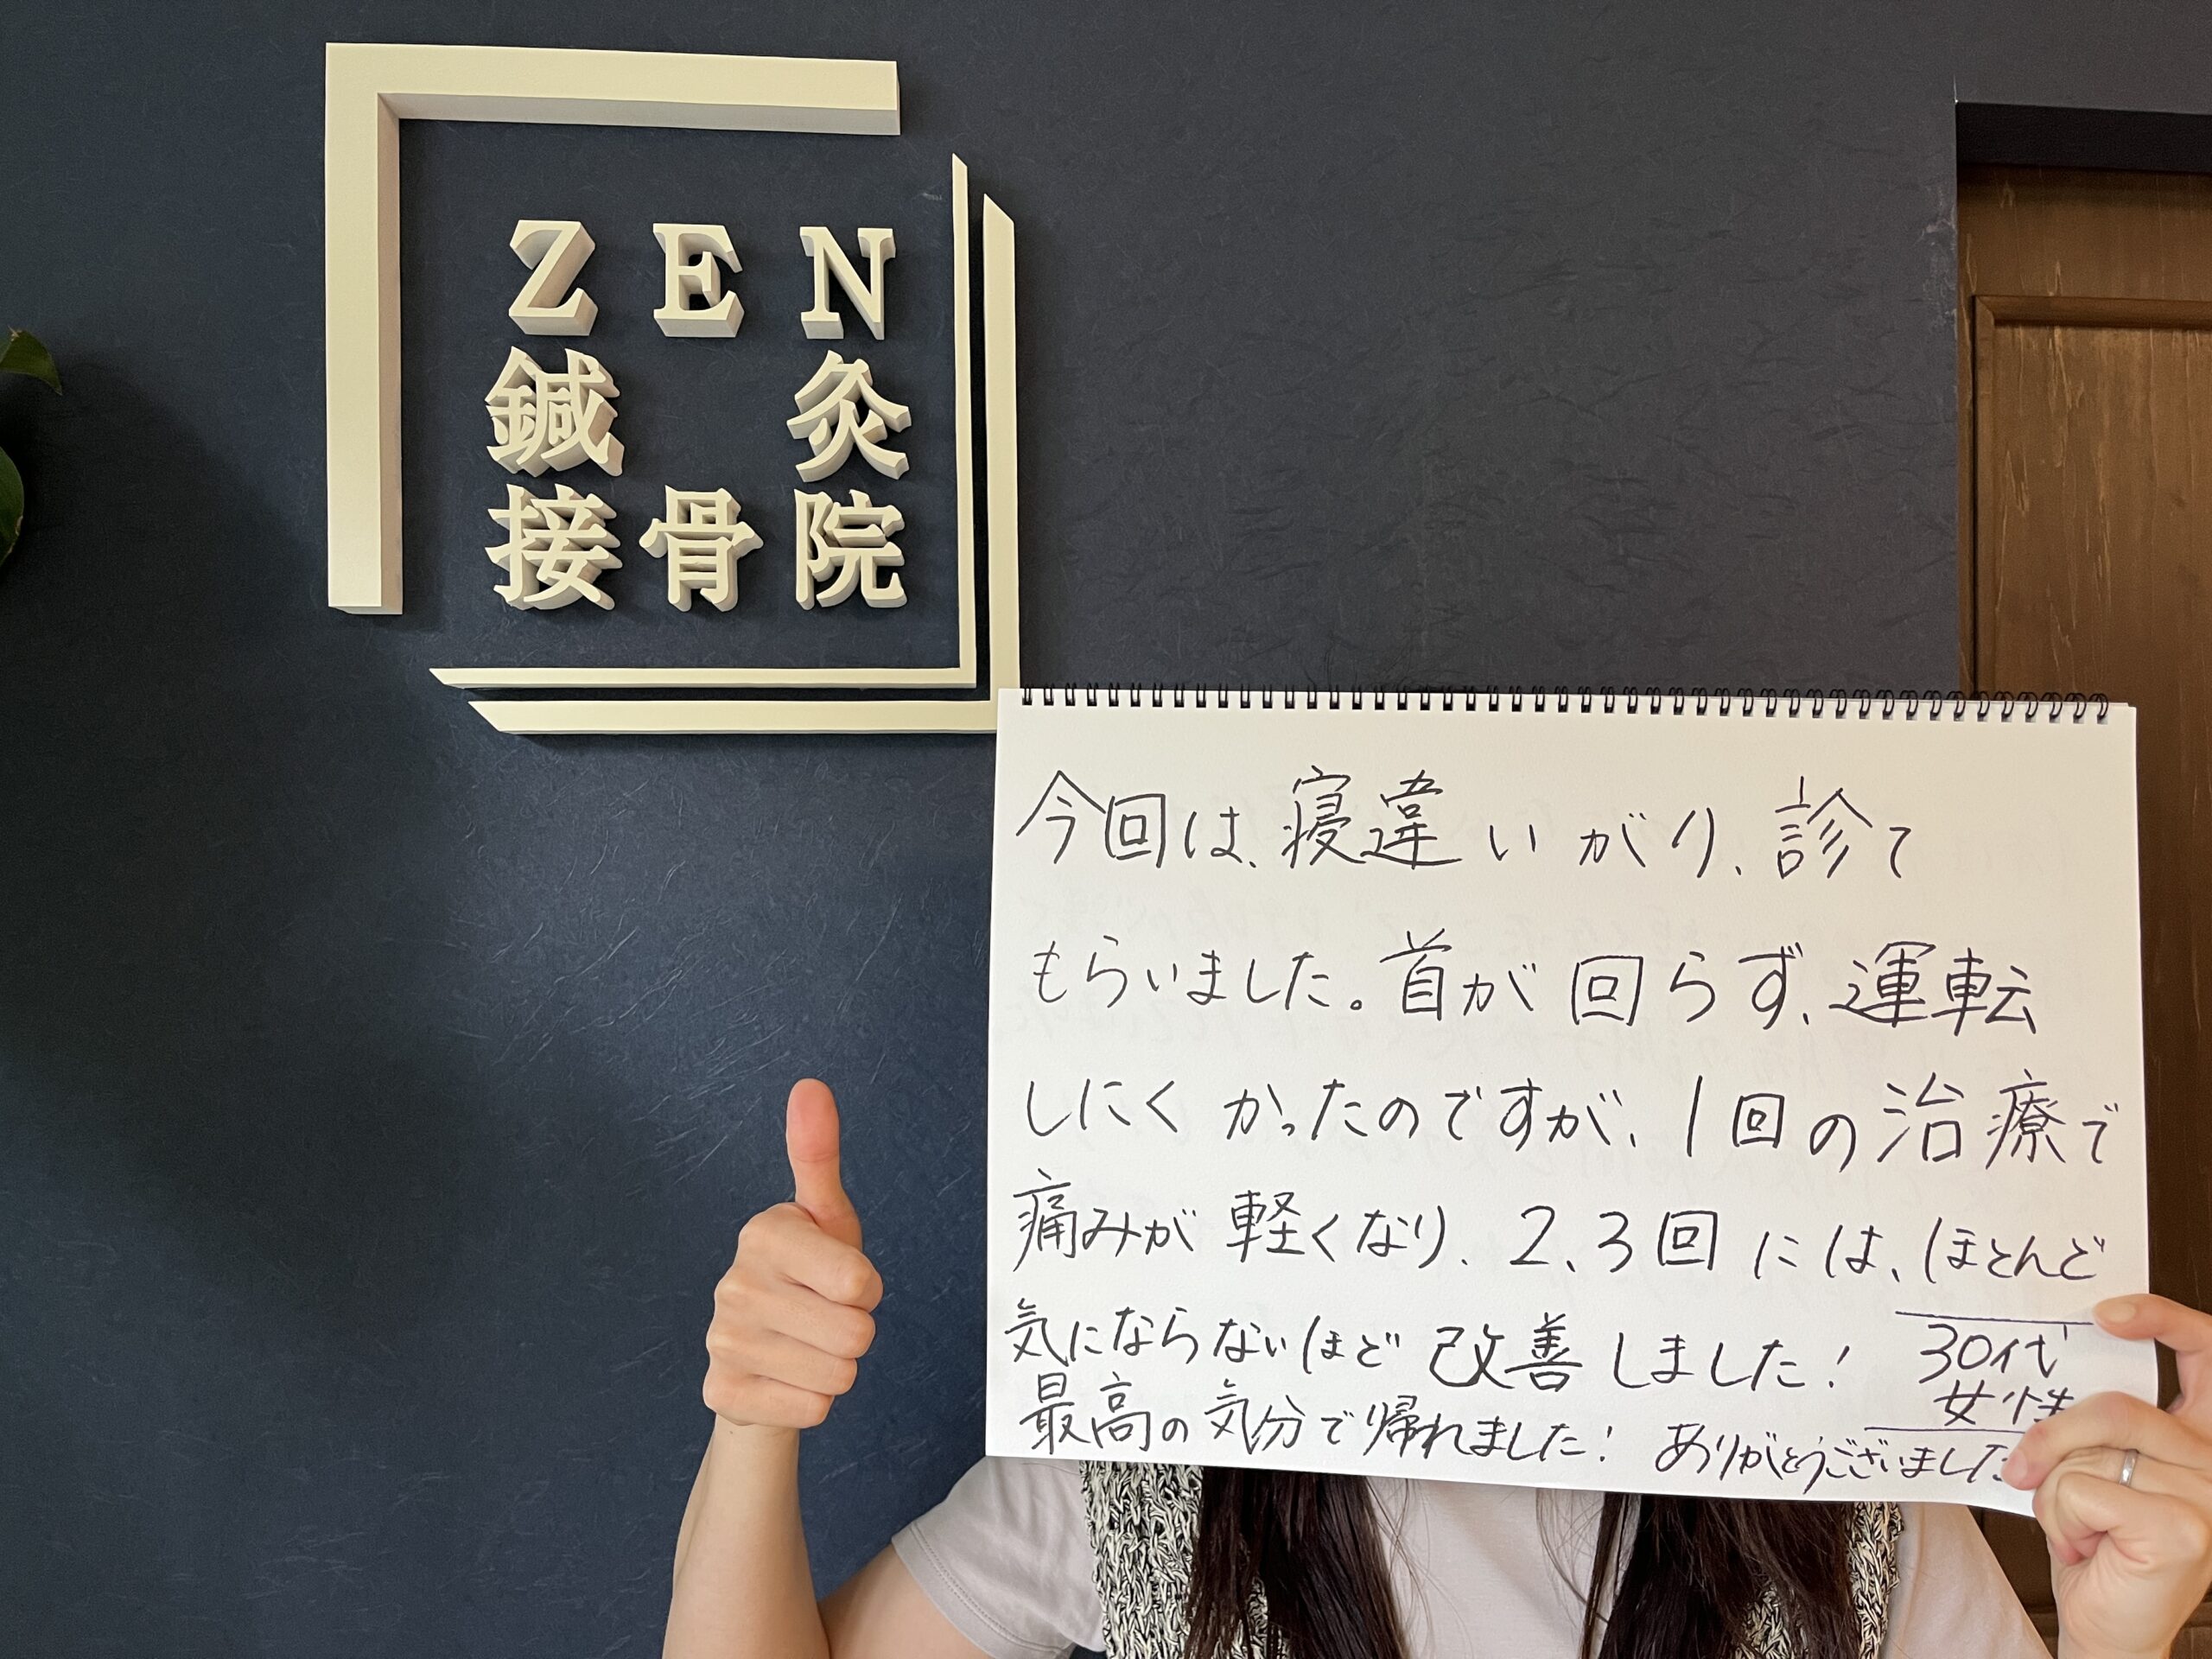 ZEN
鍼灸
接骨院
今回は、寝違いがり、診て
もらいました。首が回らず、運転
しにくかったのですが、1回の治療で
痛みが軽くなり、2、3回には、ほとんど
気にならないほど改善しました!
最高の気分で帰れました! ありがとうございました
30代
女性